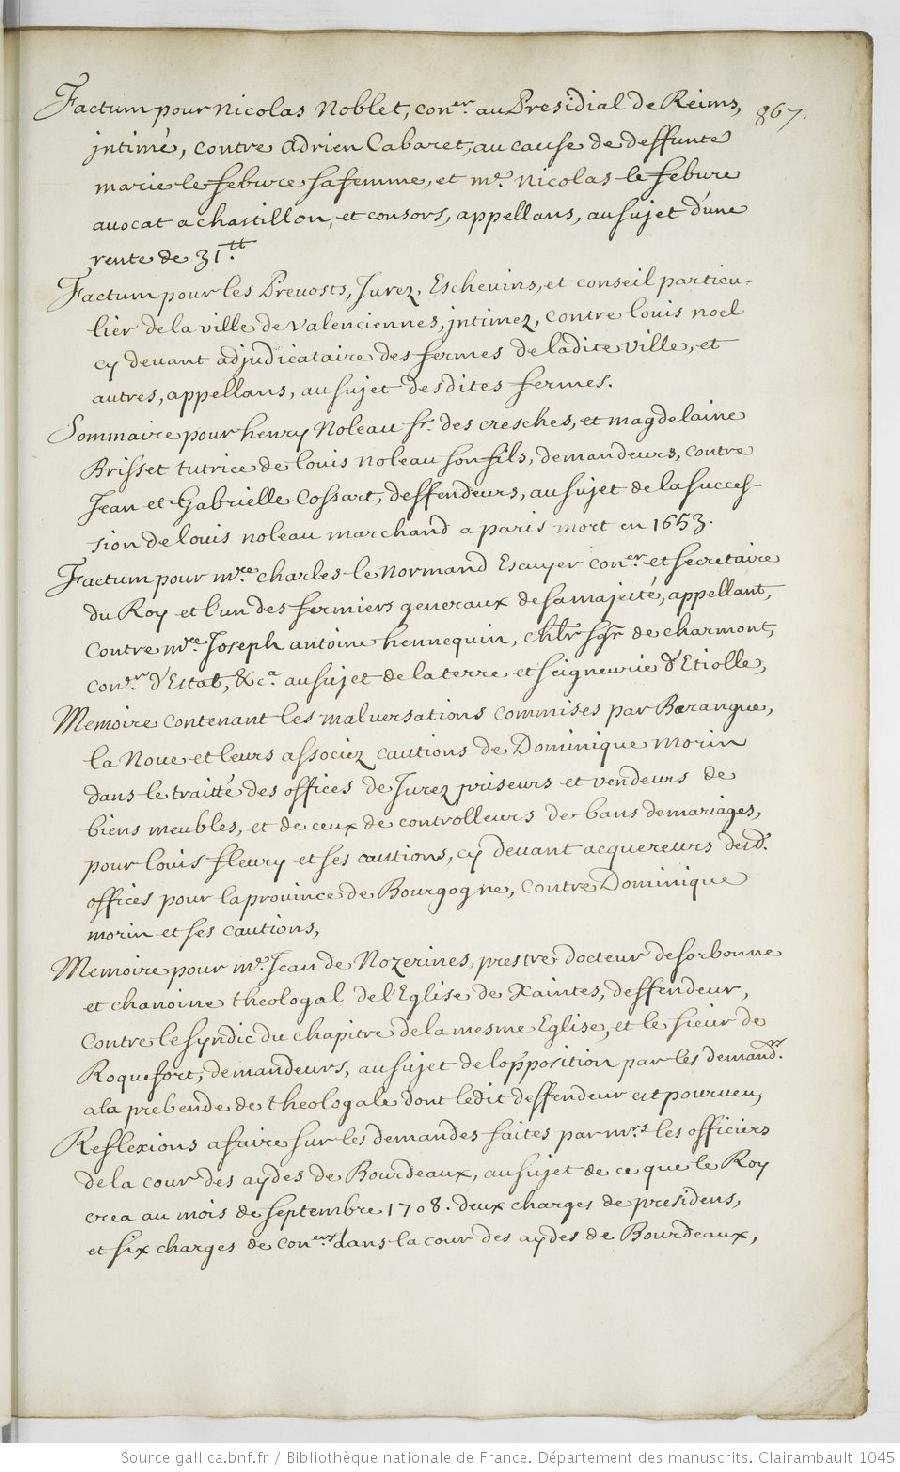 867.
Factum pour Nicolas Noblet, con.er au Presidial de Reims,
jntimé, contre Adrien Cabaret, au cause de deffunte
marie le febure sa femme, et m.e Nicolas le febure
avocat a chastillon, et consors, appellans, au sujet d'une
rente de 31.tt
Factum pour les Prevosts, Jurez, Eschevins, et conseil particu-
lier de la ville de Valenciennes, jntimez, contre louis noel
cy devant adjudicataire des fermes de ladite ville, et
autres, appellans, au sujet desdites fermes.
Sommaire pour henry Noleau s.r des cresches, et magdelaine
Brisset tutrice de louis noleau son fils, demandeurs, contre
Jean et Gabrielle Cossart, deffendeurs, au sujet de la succes-
sion de louis noleau marchand a paris mort en 1653.
Factum pour m.re charles le Normand Escuyer con.er et secretaire
du Roy et l'un des fermiers generaux de sa majesté, appellant,
contre m.re Joseph antoine hennequin, ch.lr sg.r de charmont,
con.er d'Estat, &c.a au sujet de la terre et seigneurie d'Etiolle,
Memoire contenant les malversations commises par Barangue,
la Noue et leurs associez cautions de Dominique morin
dans le traitté des offices de Jurez priseurs et vendeurs de
biens meubles, et de ceux de controlleurs de bans de mariages,
pour louis fleury et ses cautions, cy devant acquereurs desd.
offices pour la province de Bourgogne, contre Dominique
morin et ses cautions,
Memoire pour m.e Jean de Nozerines, prestre docteur de sorbonne
et chanoine theologal de l'Eglise de Xaintes, deffendeur,
contre le syndic du chapitre de la mesme Eglise, et le sieur de
Roquefort, demandeurs, au sujet de lopposition par les demand.rs
a la prebende de theologale dont ledit deffendeur est pourveu,
Reflexions a faire sur les demandes faites par m.rs les officiers
de la cour des aydes de Bourdeaux, au sujet de ce que le Roy
crea au mois de septembre 1708. deux charges de presidens,
et six charges de con.ers dans la cour des aydes de Bourdeaux,
Source gallica.bnf.fr / Bibliothèque nationale de France. Département des manuscrits. Clairambault 1045